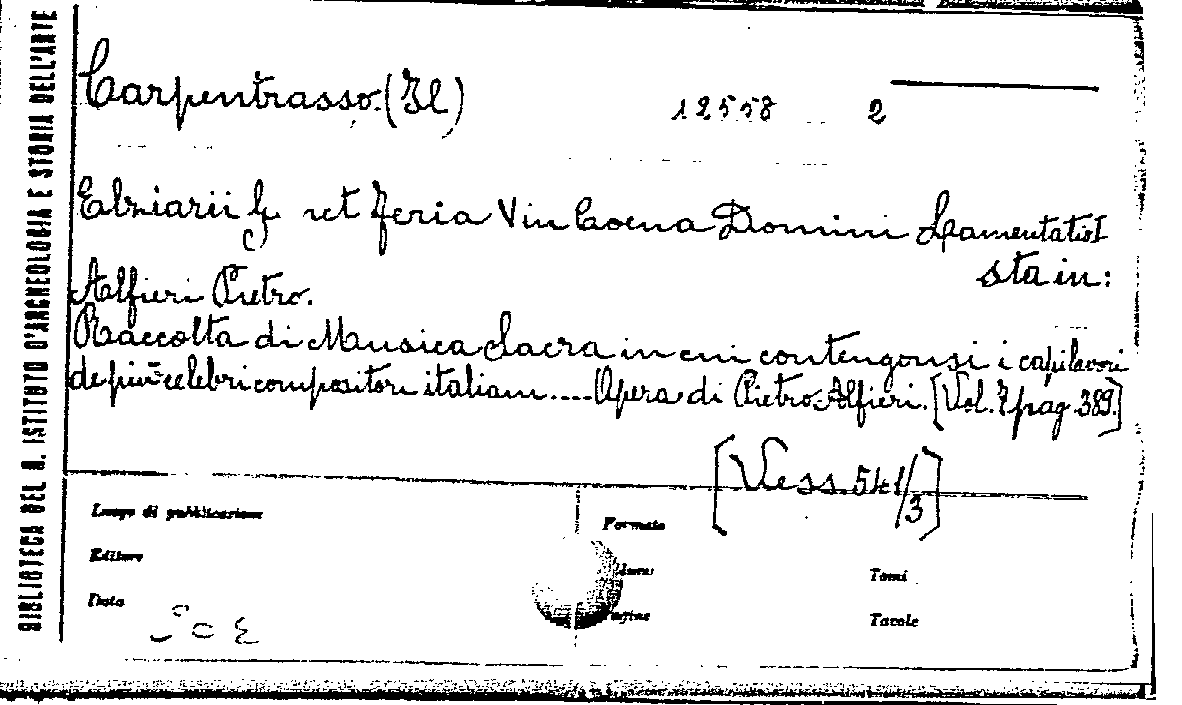 BIBLIOTECA DEL R. ISTITUTO D'ARCHEOLOGIA E STORIA DELL'ARTE
Carpentrasso (Il)
12558 2
Feria V in Coena Domini Lamentatio I
sta in:
Alfieri Pietro.
Raccolta di Musica Sacra in cui contengonsi i capilavori
de più celebri compositori italiani.... Opera di Pietro Alfieri. [Vol. pag. 389.]
[Vess. 541/3]
Luogo di pubblicazione
Formato
Editore
Tomi
Data
Pagine
Tavole